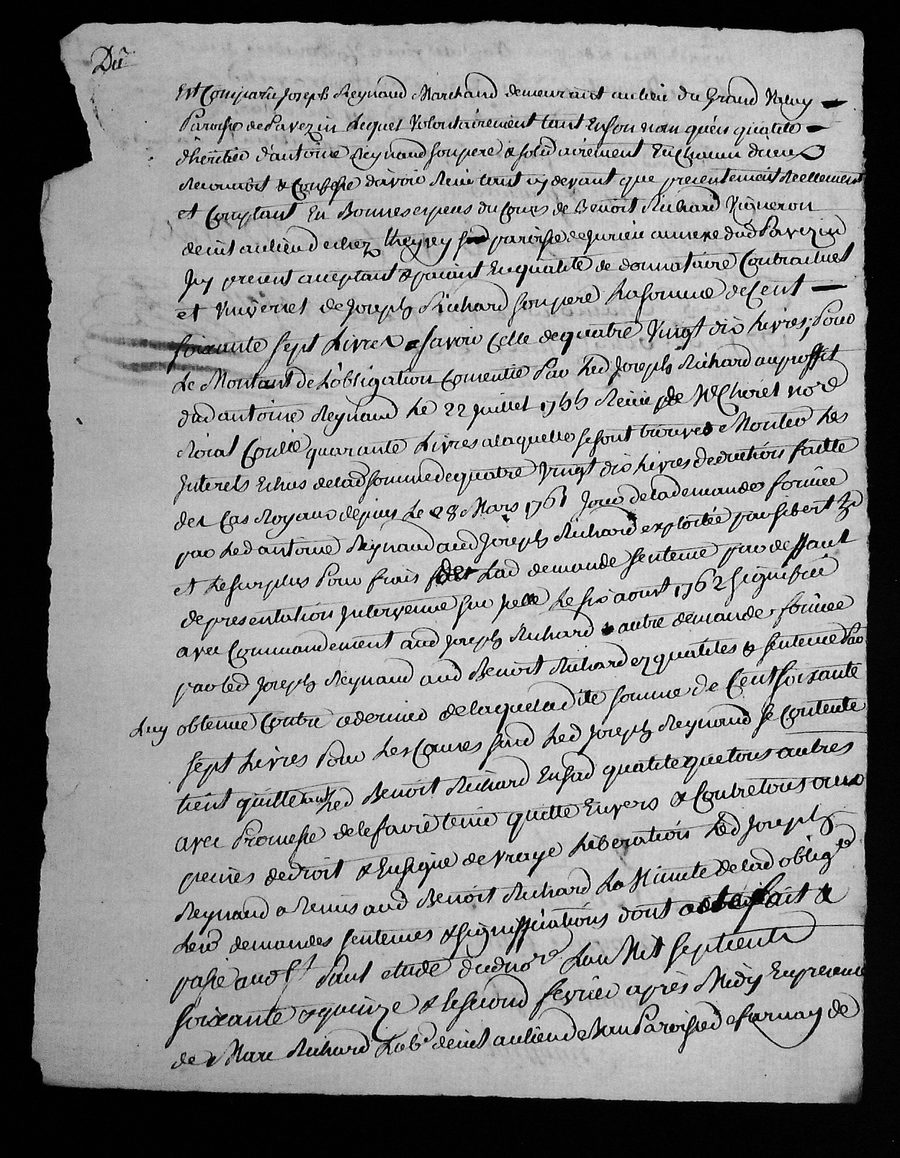 Du
Est Comparu Joseph Reynaud Marchand demeurant au lieu du Grand
Paroisse de Pavezin Lequel Volontairement tant En son nom qu'en qualité
d'heritier d'antoine Reynaud son pere & solidairement En chacun d'iceux
Reconnoit & Confesse d'avoir Receu tant cy devant que presentement Reellement
et Comptant En Bonnes especes du Cours de Benoit Richard Vigneron
demt au lieu de chez paroisse de Jurieu annexe dud Pavezin
Icy present acceptant & païant En qualité de donnataire Contractuel
et Universel de Joseph Richard son pere La somme de Cent
soixante sept Livres a savoir Celle de quatre Vingt dix Livres pour
Le Montant de L'obligation Consentie Par Led Joseph Richard au proffit
dud antoine Reynaud Le 22 Juillet 1755 Receüe Me Choret nore
Roïal Celle quarante Livres a laquelle se sont trouvés Monter Les
Interets Echus de lad somme de quatre Vingt dix Livres deduction faitte
des Cas Royaux depuis Le 28 Mars 1761 Jour de la demande formée
par Led antoine Reynaud aud Joseph Richard exploitée par Gibert
et Le surplus Pour frais Lad demande sentence par deffaut
de presentation Intervenue sur Icelle Le six aout 1762 signifiée
avec Commandement aud Joseph Richard autre demande formée
par led Joseph Reynaud aud Benoit Richard ez qualités & sentence Par
Luy obtenue Contre ce dernier de laquelle dite somme de Cent soixante
sept Livres Pour Les Causes susd Led Joseph Reynaud se Contente
tient quitte Led Benoit Richard En sad qualité que tous autres
avec Promesse de le faire tenir quitte Envers & Contre tous aux
peines de droit & En signe de Vraye Liberation Led Joseph
Reynaud a Remis aud Benoit Richard La Minute de lad oblige
Lesd demandes sentences & significations dont acte fait &
passé aud St Paul etude dud nore L'an Mil septcents
soixante & quinze & Le second fevrier après Midy En presence
de Marc Richard Labr demt au lieu de Paroisse de farnay de